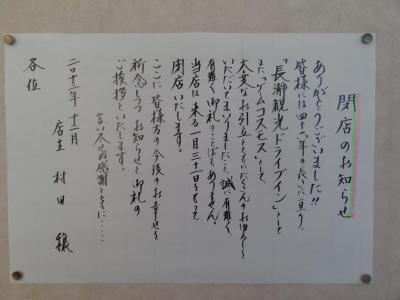 閉店のお知らせ
ありがとうございました!!
皆様には四十六年の長きに亘り、
「長瀞観光ドライブイン」として
また「ゲームコスモス」として、
大変なお引立とともにたくさんのお力添えを
いただいてまいりましたこと、誠に有難く、
有難く御礼のことばもありません。
当店は来る一月三十一日をもって
閉店いたします。
ここに皆様方の今後のお幸せを
祈念しつつお知らせと御礼の
ご挨拶といたします。
言い尽せぬ感謝とともに・・・・・
二〇二三年 十二月
店主 村田 穣
各位